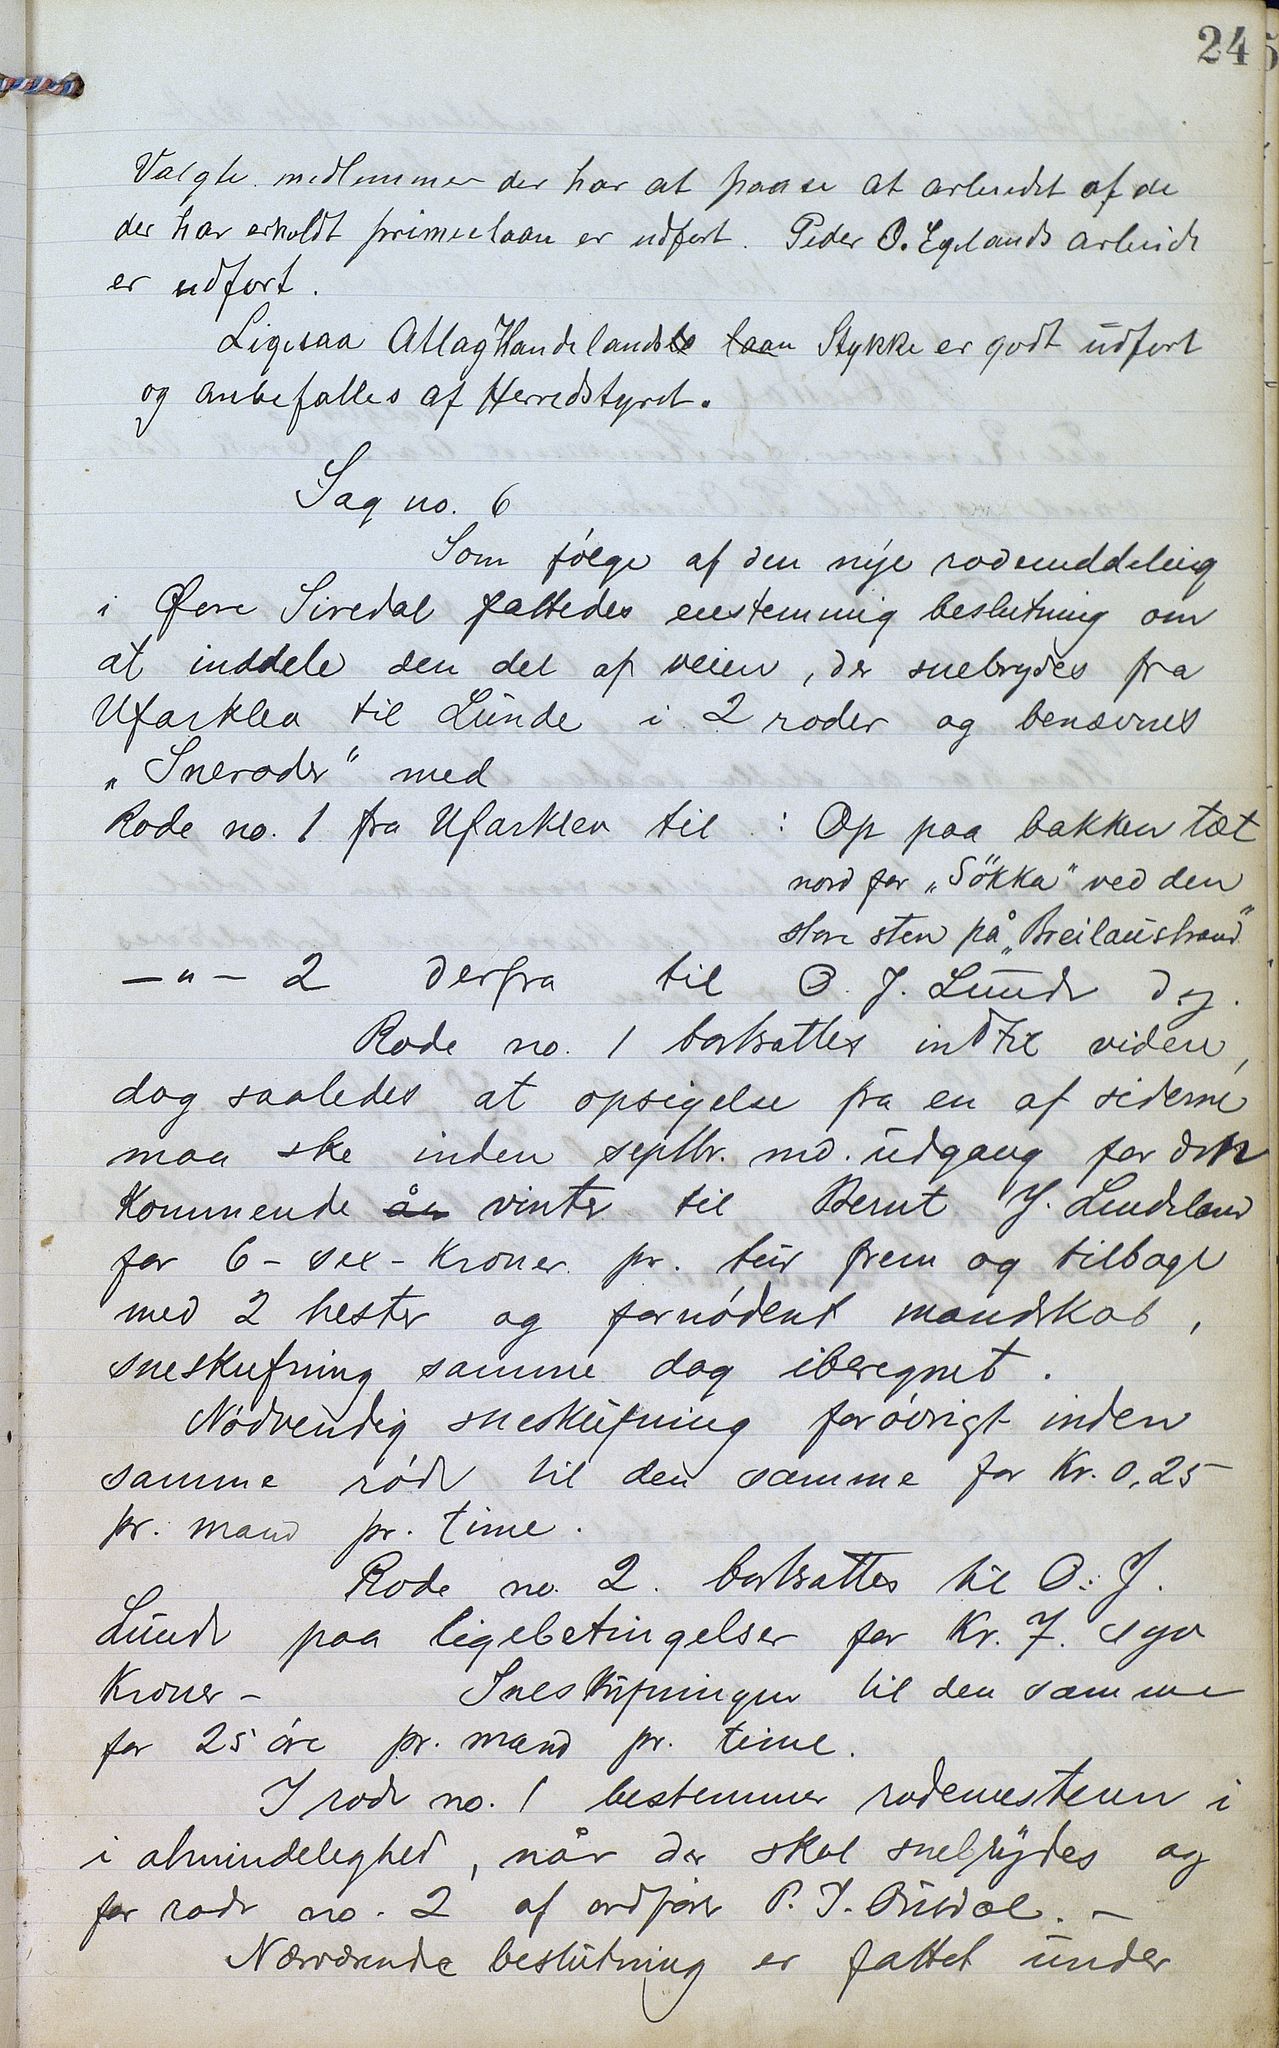 24
Valgte medlemmer der har at paase at arbeidet af de
der har erholdt primielaan er udfört. Peder O. Egelands arbeide
er udfört.
Ligesaa Atlag Handelands laan Stykke er godt udfört
og anbefalles af Herredstyret.
Sag no. 6
Som følge af den nye rodeinddeling
i Øvre Siredal fattedes enstemmig beslutning om
at inddele den del af veien, der snebrydes fra
Ufarklev til Lunde i 2 roder og benævnes
„Sneroder" med
Rode no. 1 fra Ufarklev til : Op paa bakken tæt
nord for „Sökka" ved den
store sten på „Breilaustrand"
— " — 2 derfra til O. J. Lunde dg.
Rode no. 1 bortsattes indtil videre,
dog saaledes at opsigelse fra en af siderne
maa ske inden septbr. md. udgang for den
Kommende år vinter til Bernt J. Lindeland
for 6 - sex - Kroner pr. tur frem og tilbage
med 2 hester og fornödent mandskab,
sneskufning samme dag iberegnet.
Nödvendig sneskufning forövrigt inden
samme rode til den samme for Kr. 0,25
pr. mand pr. time.
Rode no. 2. bortsattes til O. J.
Lunde paa ligebetingelser for Kr. 7. syv
Kroner - Sneskufningen til den samme
for 25 öre pr. mand pr. time.
I rode no. 1 bestemmer rodemesteren i
i almindelighed, når der skal snebrydes og
for rode no. 2 af ordförer P. J. Ousdal. -
Nærværende beslutning er fattet under